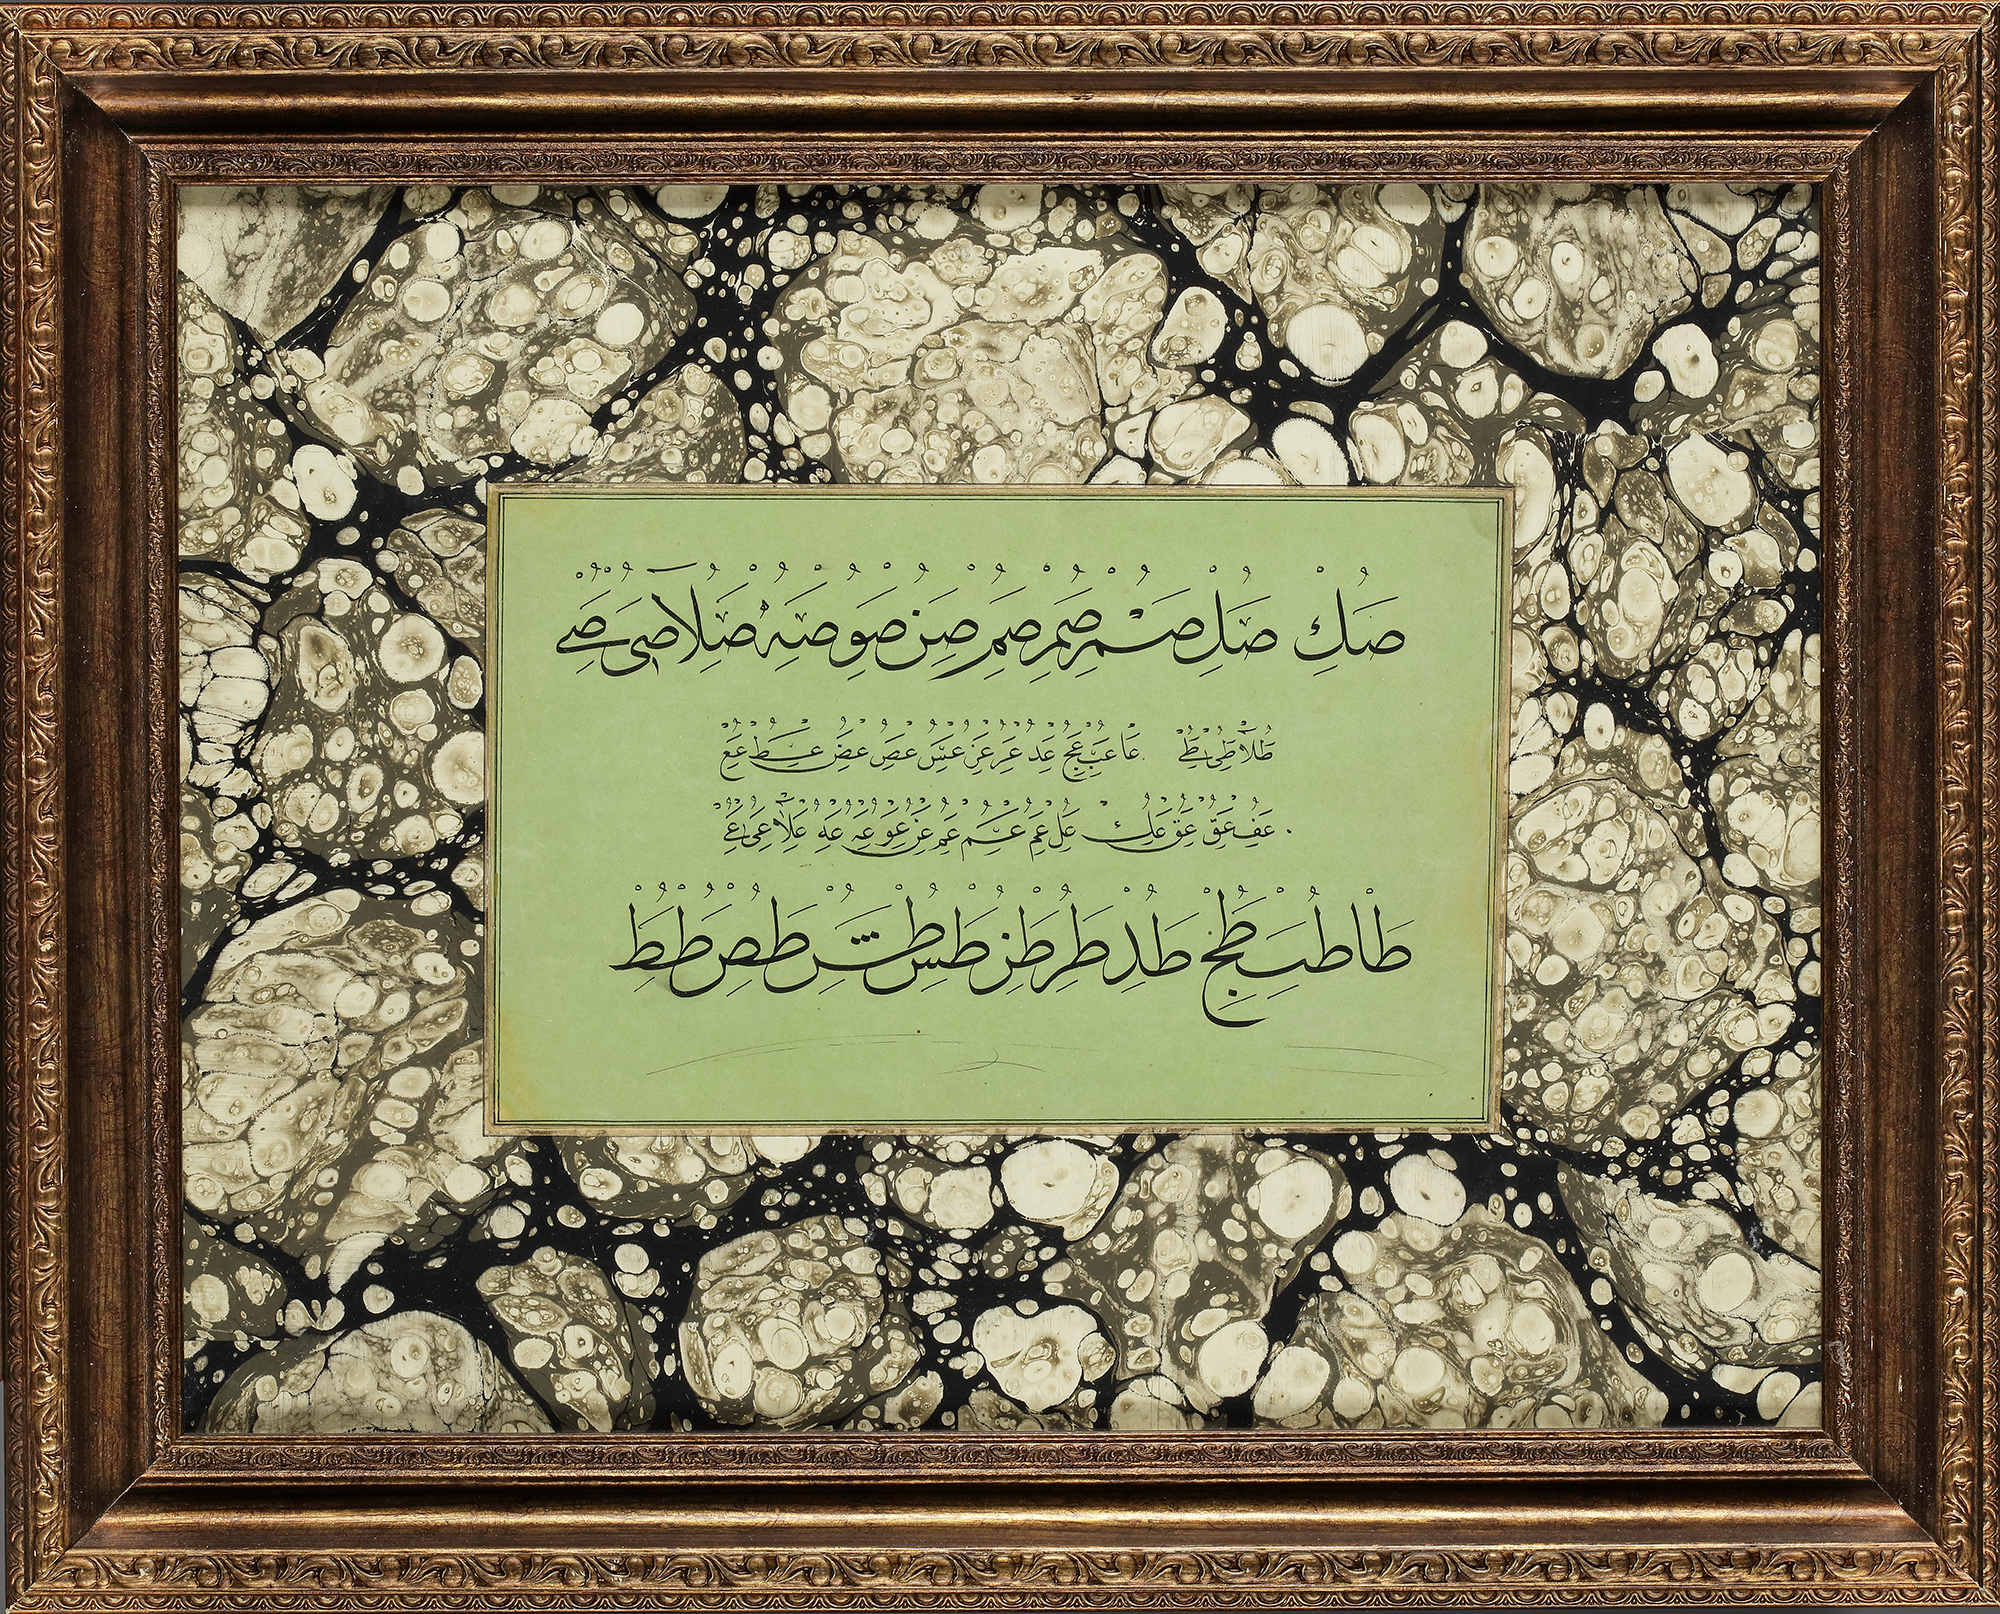 صك صل صم صم صم صن صو صه صلا صى صے
طلا طى طے عا عب عج عد عر عز عس عص عض عط عع
عف عق عق عك عل عم عم عم عن عو عه عه علا عى عے
طا طب طج طد طر طز طس طش طص طط طط